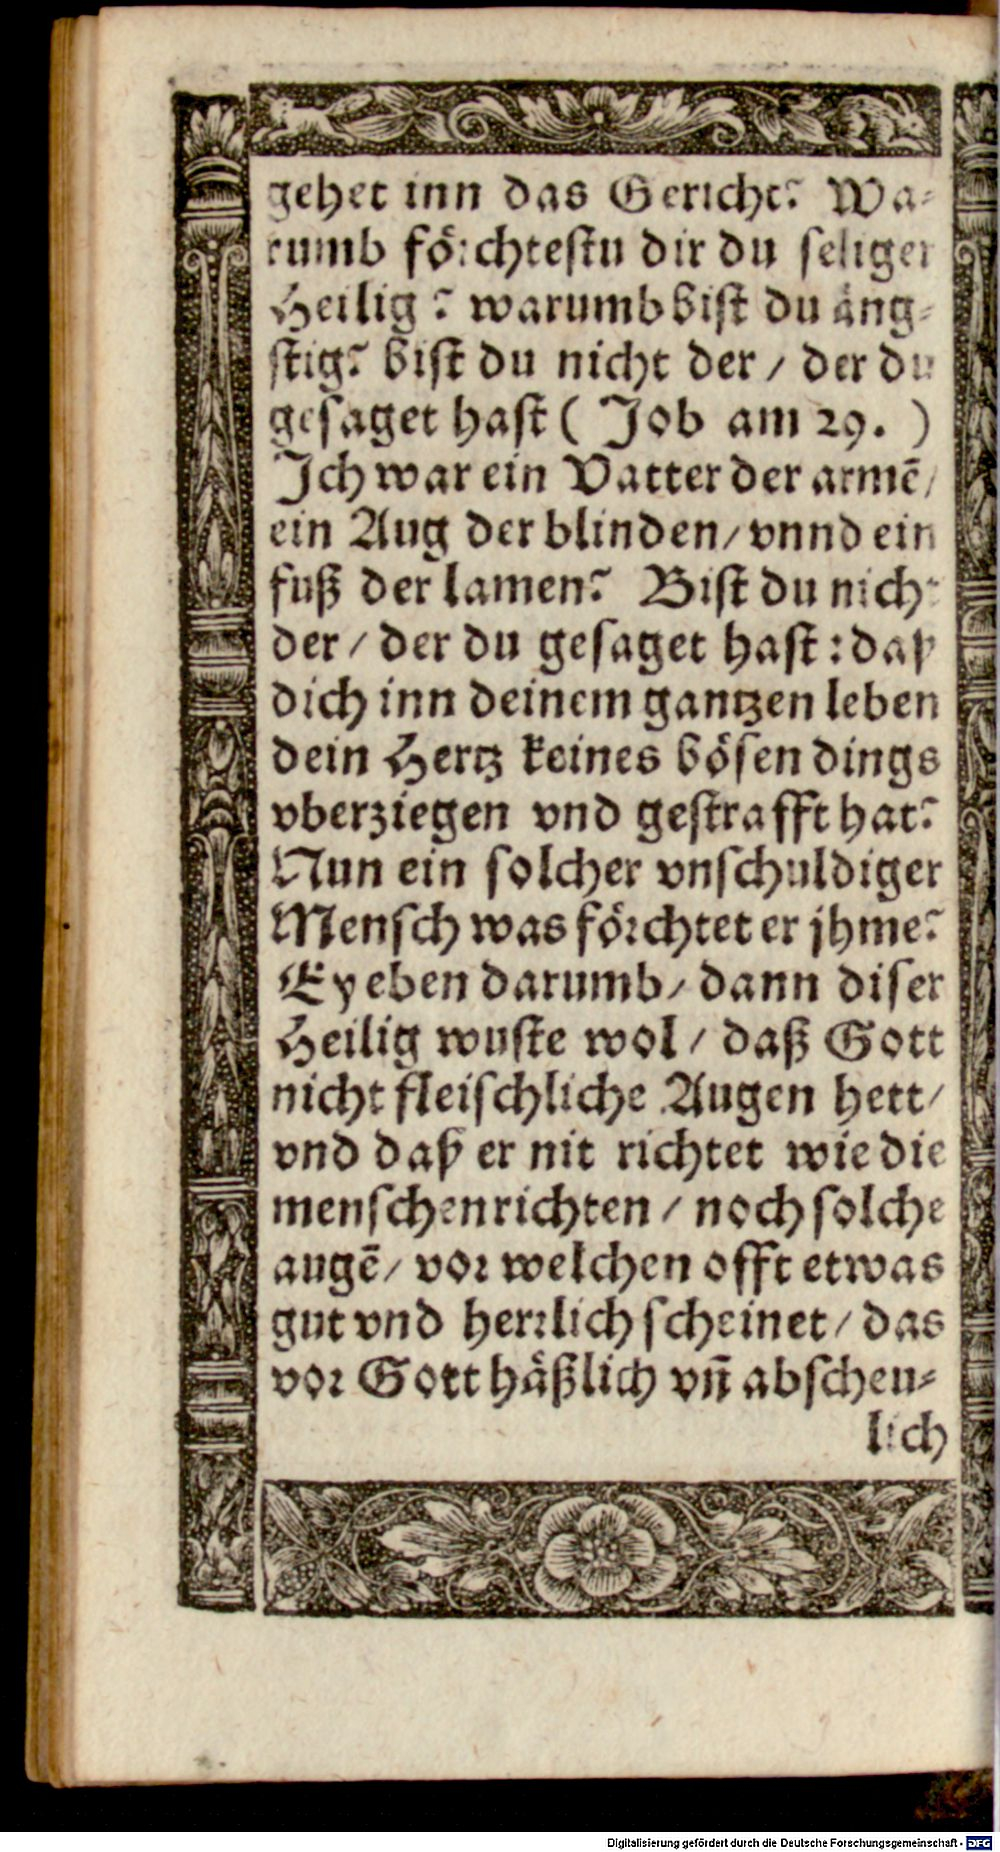 gehet inn das Gericht? Wa-
rumb förchtestu dir du seliger
Heilig? warumb bist du äng-
stig? bist du nicht der / der du
gesaget hast ( Job am 29. )
Ich war ein Vatter der armē /
ein Aug der blinden / vnnd ein
fuß der lamen? Bist du nicht
der / der du gesaget hast: daß
dich inn deinem gantzen leben
dein Hertz keines bösen dings
vberziegen vnd gestrafft hat?
Nun ein solcher vnschuldiger
Mensch was förchtet er jhme?
Ey eben darumb / dann diser
Heilig wuste wol / daß Gott
nicht fleischliche Augen hett /
vnd daß er nit richtet wie die
menschen richten / noch solche
augē / vor welchen offt etwas
gut vnd herrlich scheinet / das
vor Gott häßlich vn̄ abscheu-
lich
Digitalisierung gefördert durch die Deutsche Forschungsgemeinschaft - DFG